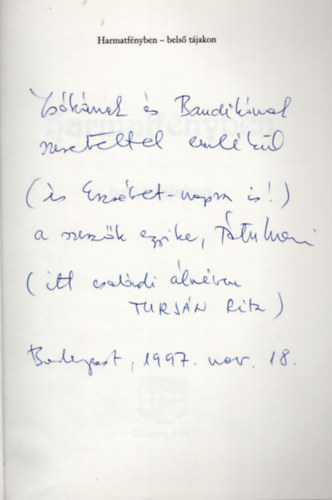 Harmatfényben – belső tájakon
Zsókának és Bandikának
szeretettel emlékül
(és Erzsébet-napra is!)
a szerzők egyike,
(itt családi álnéven
TURJÁN Rita)
Budapest, 1997. nov. 18.